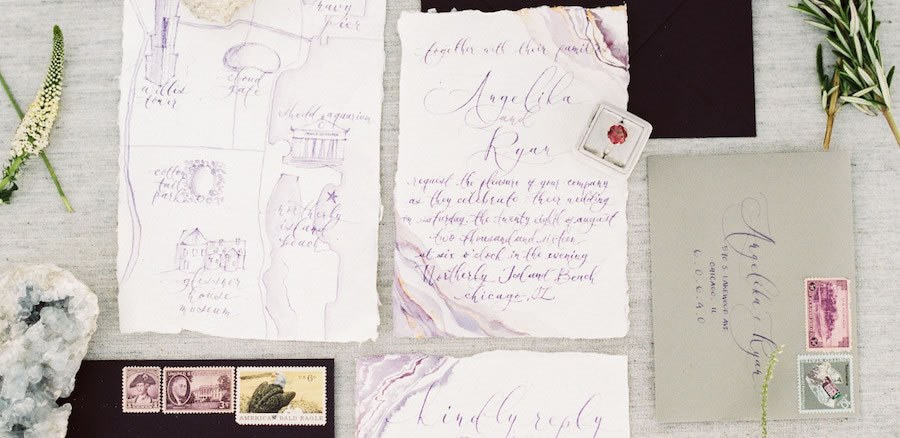 navy
pier
willis
tower
cloud
gate
shedd aquarium
park
northerly
island
beach
glessner
house
museum
together with their families
Angelika
and
Ryan
request the pleasure of your company
as they celebrate their wedding
on saturday, the twenty eight of august
two thousand and sixteen
at six o'clock in the evening
Northerly Island Beach
chicago, IL
Kindly reply
Angelika & Ryan
CHICAGO, IL
6¢
AMERICAN BALD EAGLE
3¢